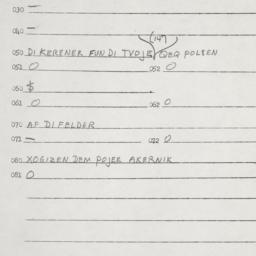 030 —
040 —
(147)
050 DI KERENER FUN DI TVOJE QEQ POLSEN
051 0 052 0
060 $
061 0 062 0
070 AF DI FELDER
071 — 072 0
080 XOGIZEN DEM POJER AKERNIK
081 0